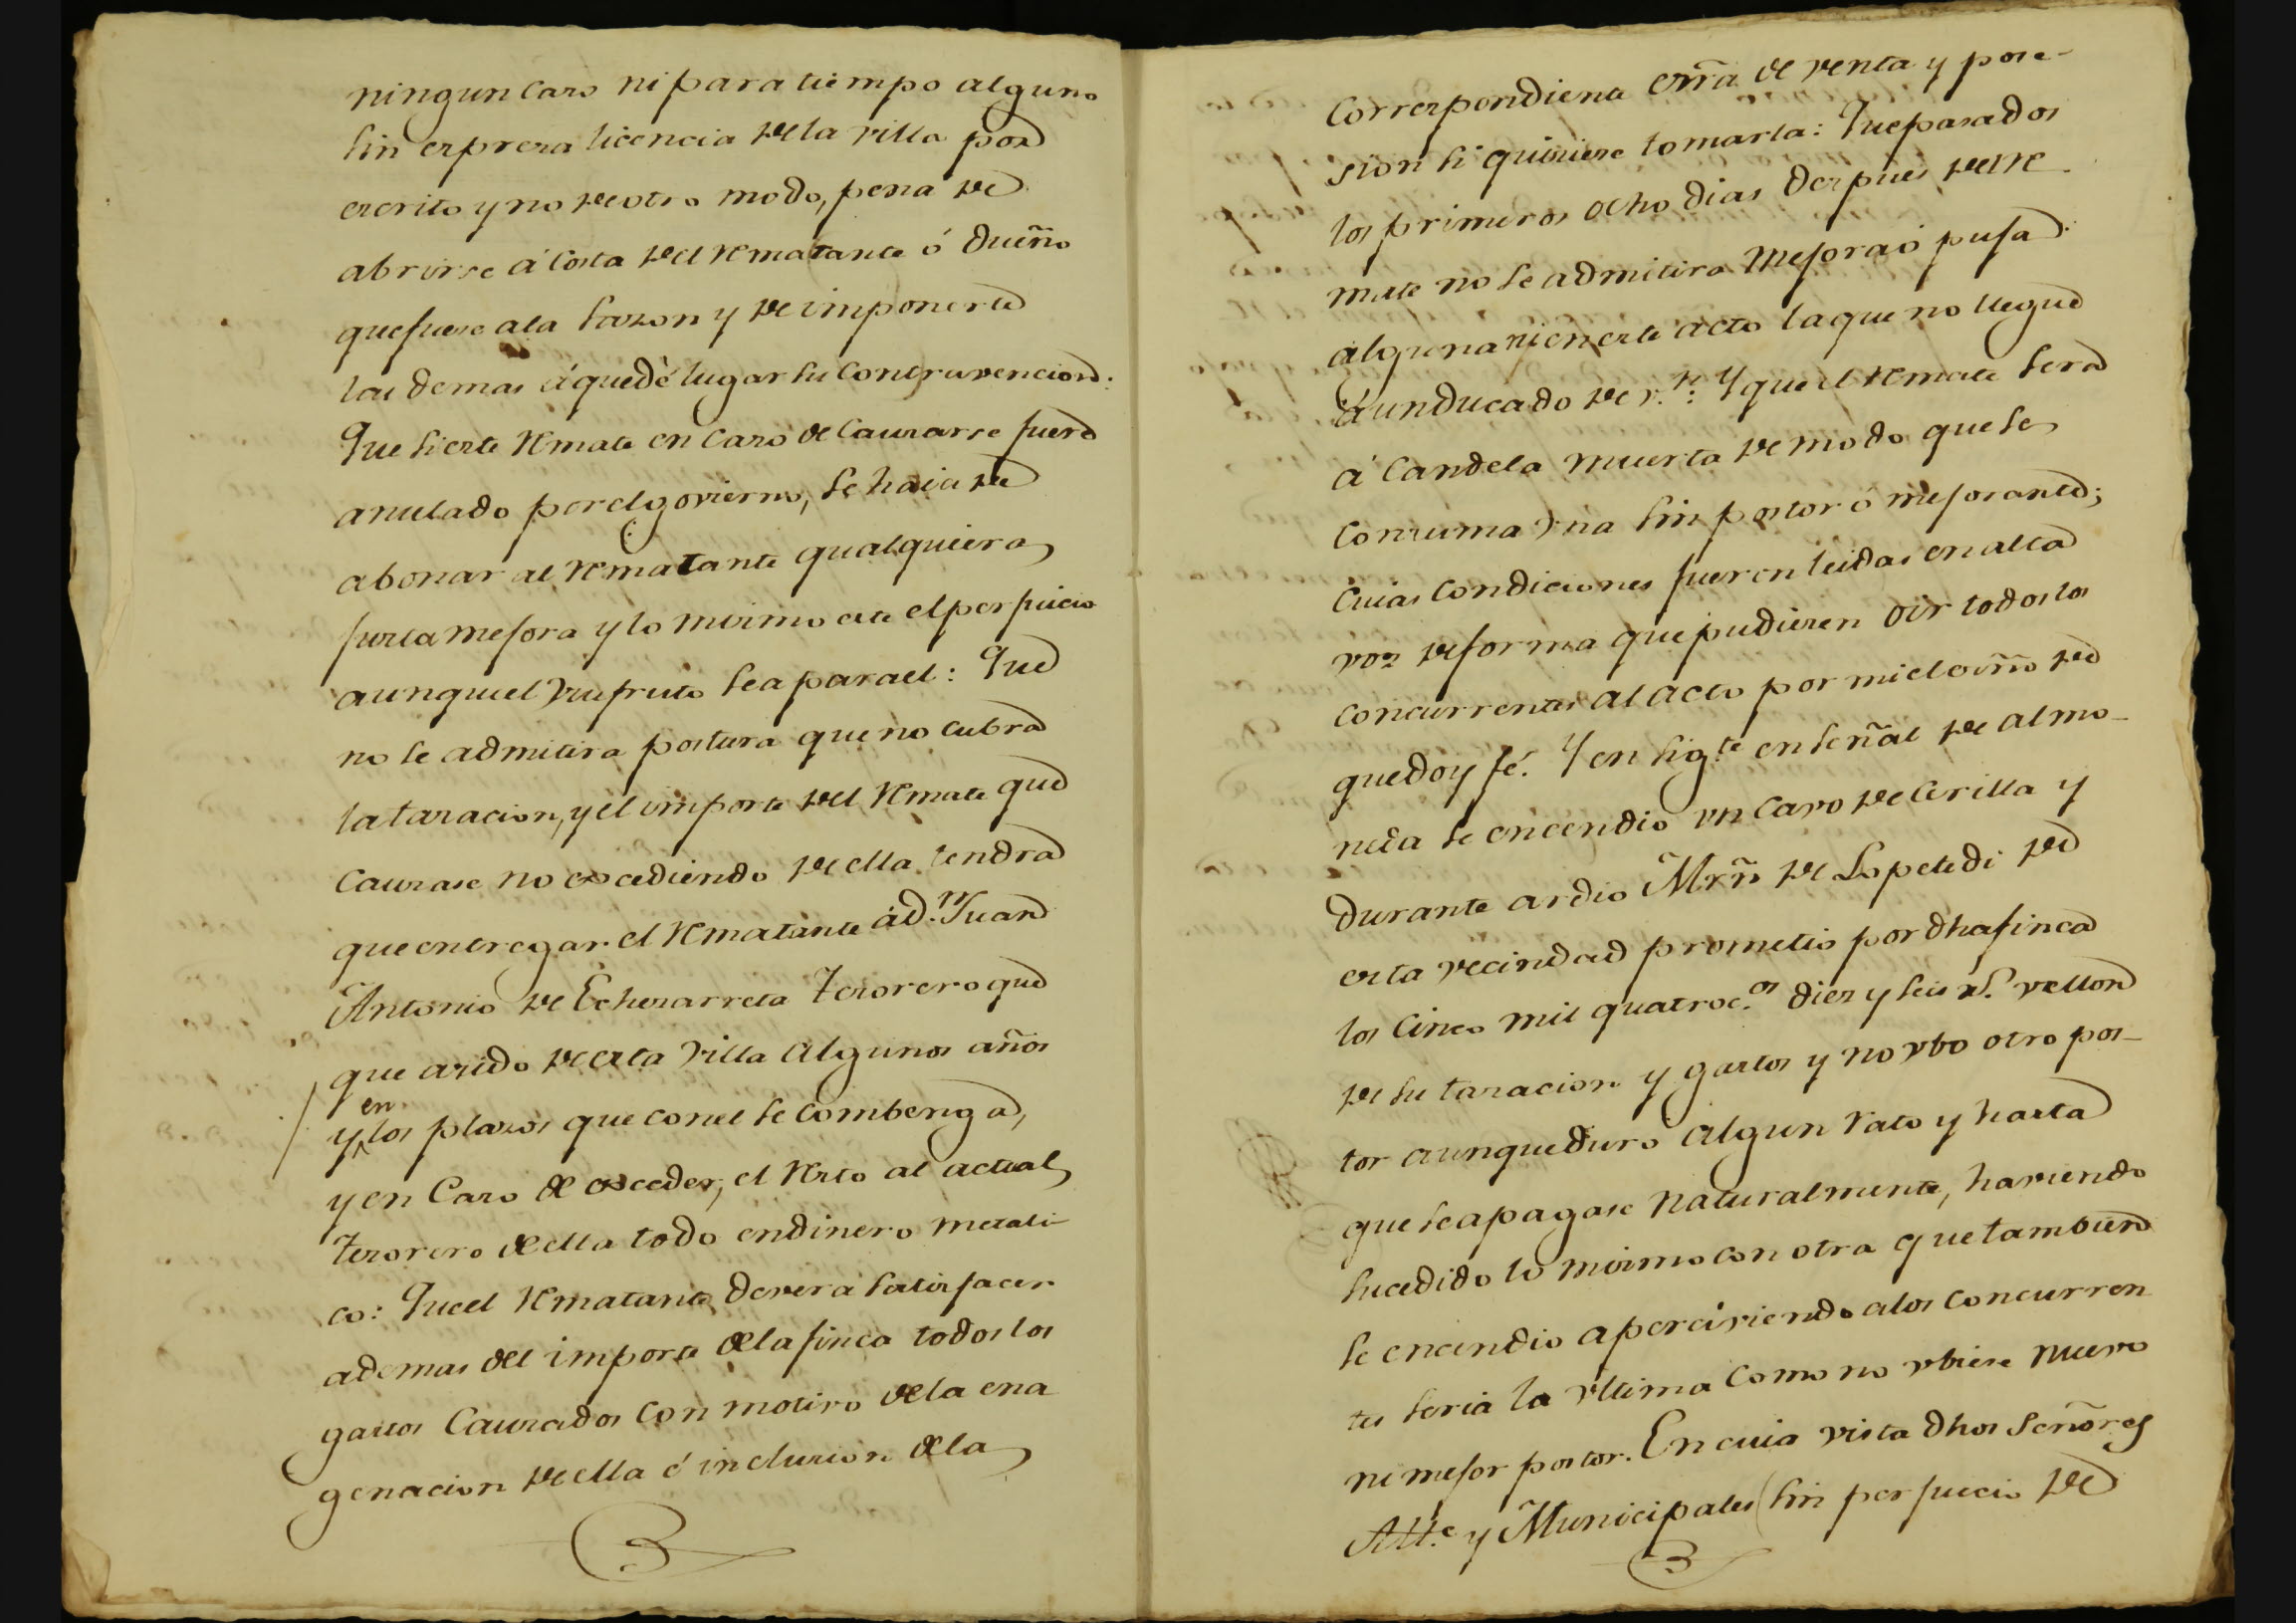 ningun caso ni para tiempo alguno
sin expresa licencia de la villa por
escrito y no de otro modo, pena de
abrirse á costa del Rematante ó dueño
que fuese a la sazon y de imponerle
las demas á que dé lugar su contravencion:
Que si este Remate en caso de causarse fuere
anulado por el govierno, se haia de
abonar al Rematante qualquiera
justa mejora y lo mismo este el perjuicio
aunque el vsufruto sea para el: Que
no se admitira postura que no cubra
la tasacion, y el importe del Remate que
causase no excediendo de ella tendra
que entregar el Rematante á d.n Juan
Antonio de Echezarreta Tesorero que
que asido de esta villa algunos años
y en los plazos que con el se combenga,
y en caso de exceder, el Rsto al actual
tesorero de ella todo en dinero metali-
co: Que el Rematante devera satisfacer
ademas del importe de la finca todos los
gastos causados con motivo de la ena
genacion de ella é inclusion de la
correspondiente esrra de venta y pose-
sion si quisiere tomarla: Que pasados
los primeros ocho dias despues del Re-
mate no se admitira mejora ó puja
alguna ni en este acto la que no llegue
á un ducado de v.n: Y que el Remate sera
á candela muerta de modo que se
consuma vna sin postor ó mejorante;
cuias condiciones fueron leidas en alta
voz de forma que pudiesen oir todos los
concurrentes al acto por mi el oiño de
que doy fé. Y en sig.te en señal de almo-
neda se encendio vn cavo de cerilla y
durante ardio Mrñ de Lopetedi de
esta vecindad prometio por dha finca
los cinco mil quatroc.os diez y seis rs. vellon
de su tasacion y gastos y no vbo otro pos-
tor aunque duro algun rato y hasta
que se apagase naturalmente, haviendo
sucedido lo mismo con otra que tambien
se encendio aperciviendo a los concurren
tes seria la vltima como no vbiese nuevo
ni mejor postor. En cuia vista dhos señores
Alle y Municipales (sin perjuicio de